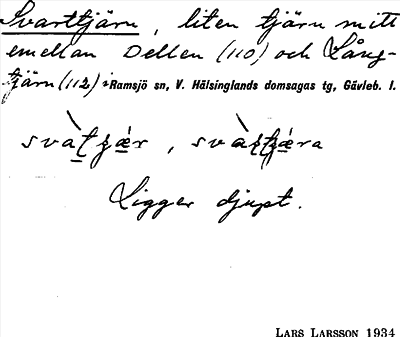 Svarttjärn, liten tjärn mitt
emellan Dellen (110) och Lång-
tjärn (112) i Ramsjö sn, V. Hälsinglands domsagas tg, Gävleb. l.
Ligger djupt.
LARS LARSSON 1934